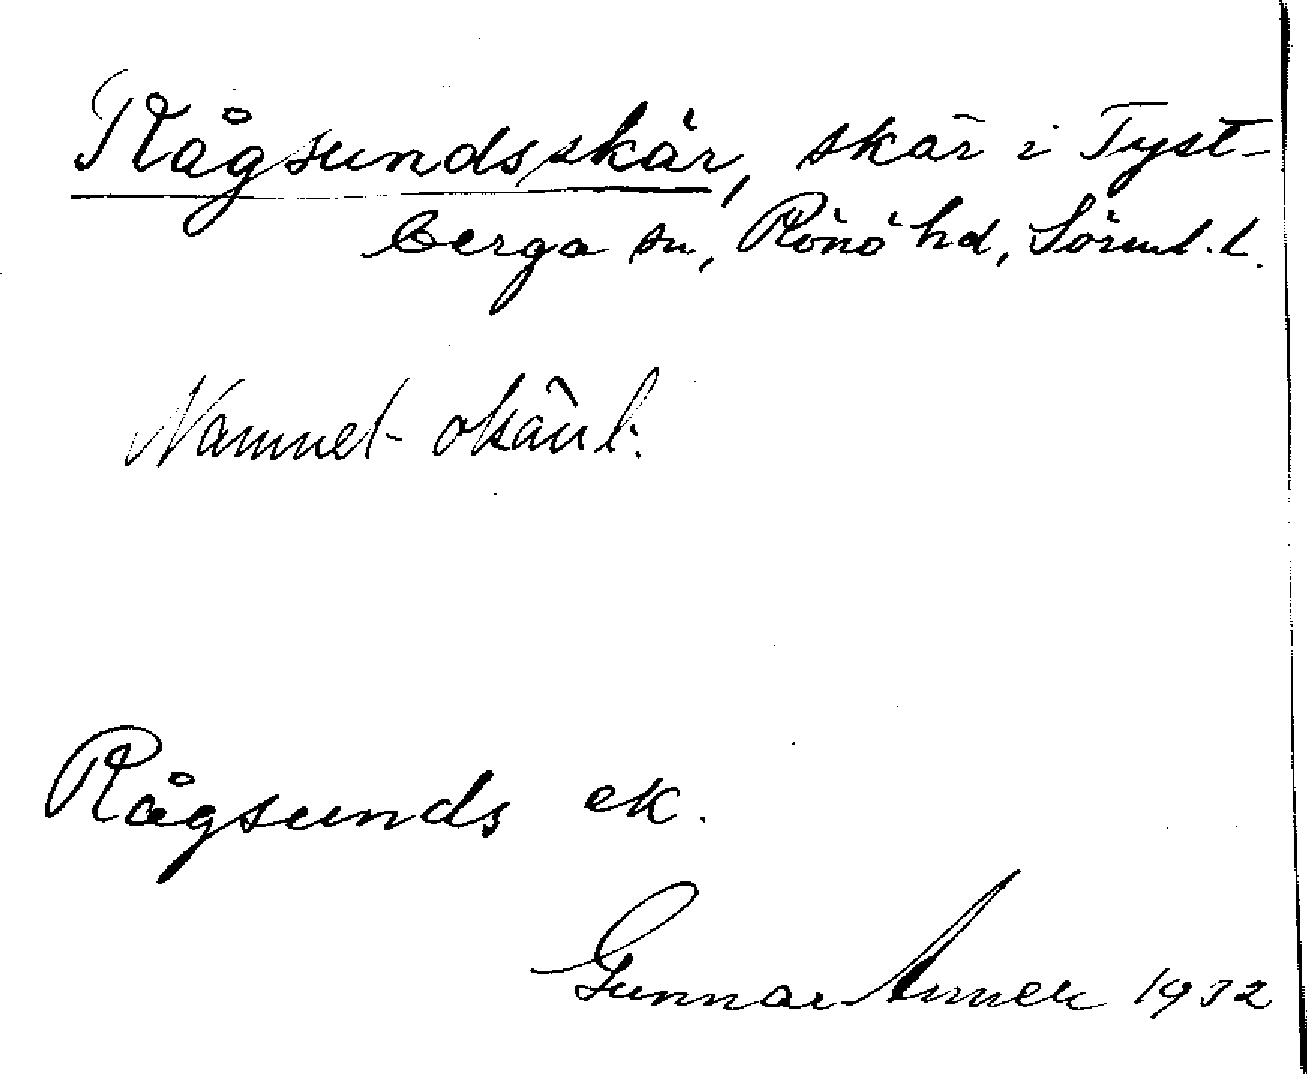 Rågsundsskär, skär i Tyst-
berga sn, Rönö hd, Sörml. l.
Namnet okänt.
Rågsunds ek.
Gunnar 1932